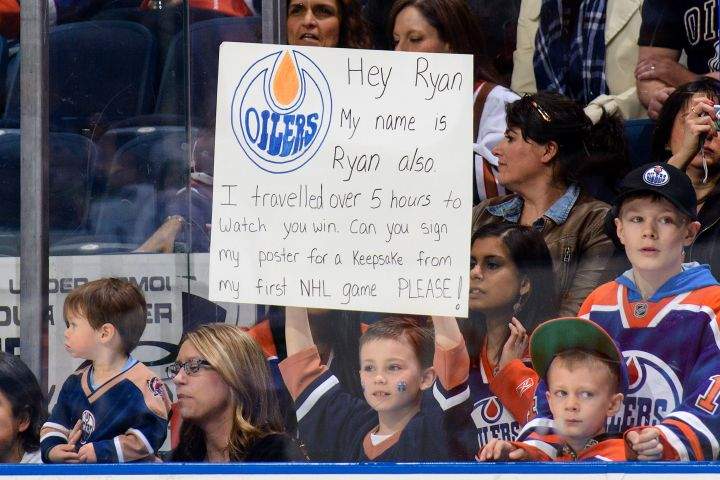 Hey Ryan
My name is
OILERS
Ryan also.
I travelled over 5 hours to
Watch you win. Can you sign
my poster for a keepsake from
my first NHL game PLEASE!
OILERS
UNDER ARMOU
OILERS